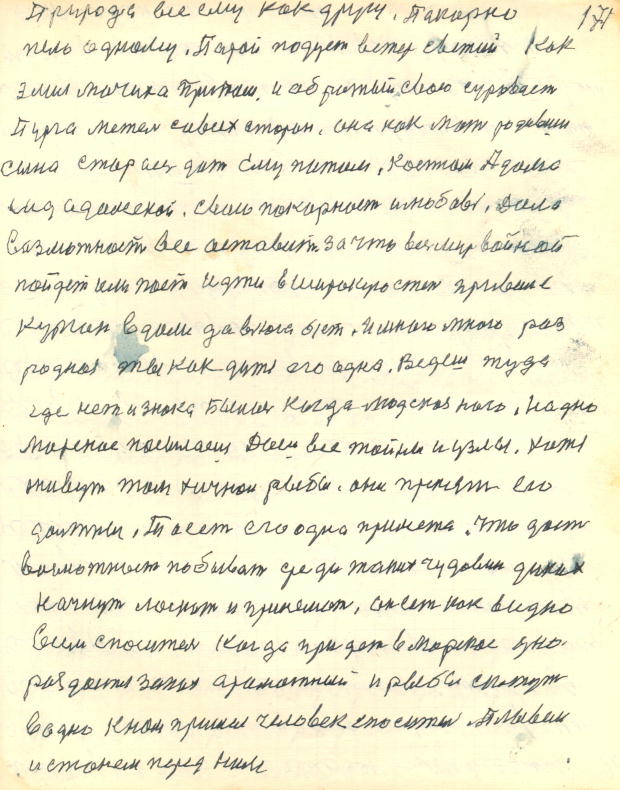 Природа все ему как другу. Пакорно 171
тело одному. Парой подует ветер свежий как
змия мачиха и обратый свою суровост
Пурга метел савсех старон. она как мат родивши
сына старает дат ему питом. Костюм Адолга
свою покорност и любовь. Дала
Вазможност все оставит за что весмир войной
пойдет или поет иди в широку степ
Курган вдали да вкога бьет. И много много раз
родная ты как дитя его одна. Ведеш туда
где нет и знока была когда людская нога. На дно
морское посылаеш Даеш все тойны и узлы. хотя
живут там хичной рыбы. они принят его
должны. То ест его одна примета. Что дает
возможност побыват среди таких чудовиш диких
Начнут ласкат и принемат. он ест как видно
Всем спосител Когда придет в морское дно.
раздастся запах араматный и рыбы скажут
Вадно К нам пришел человек спосител. Плывем
и станем перед ним